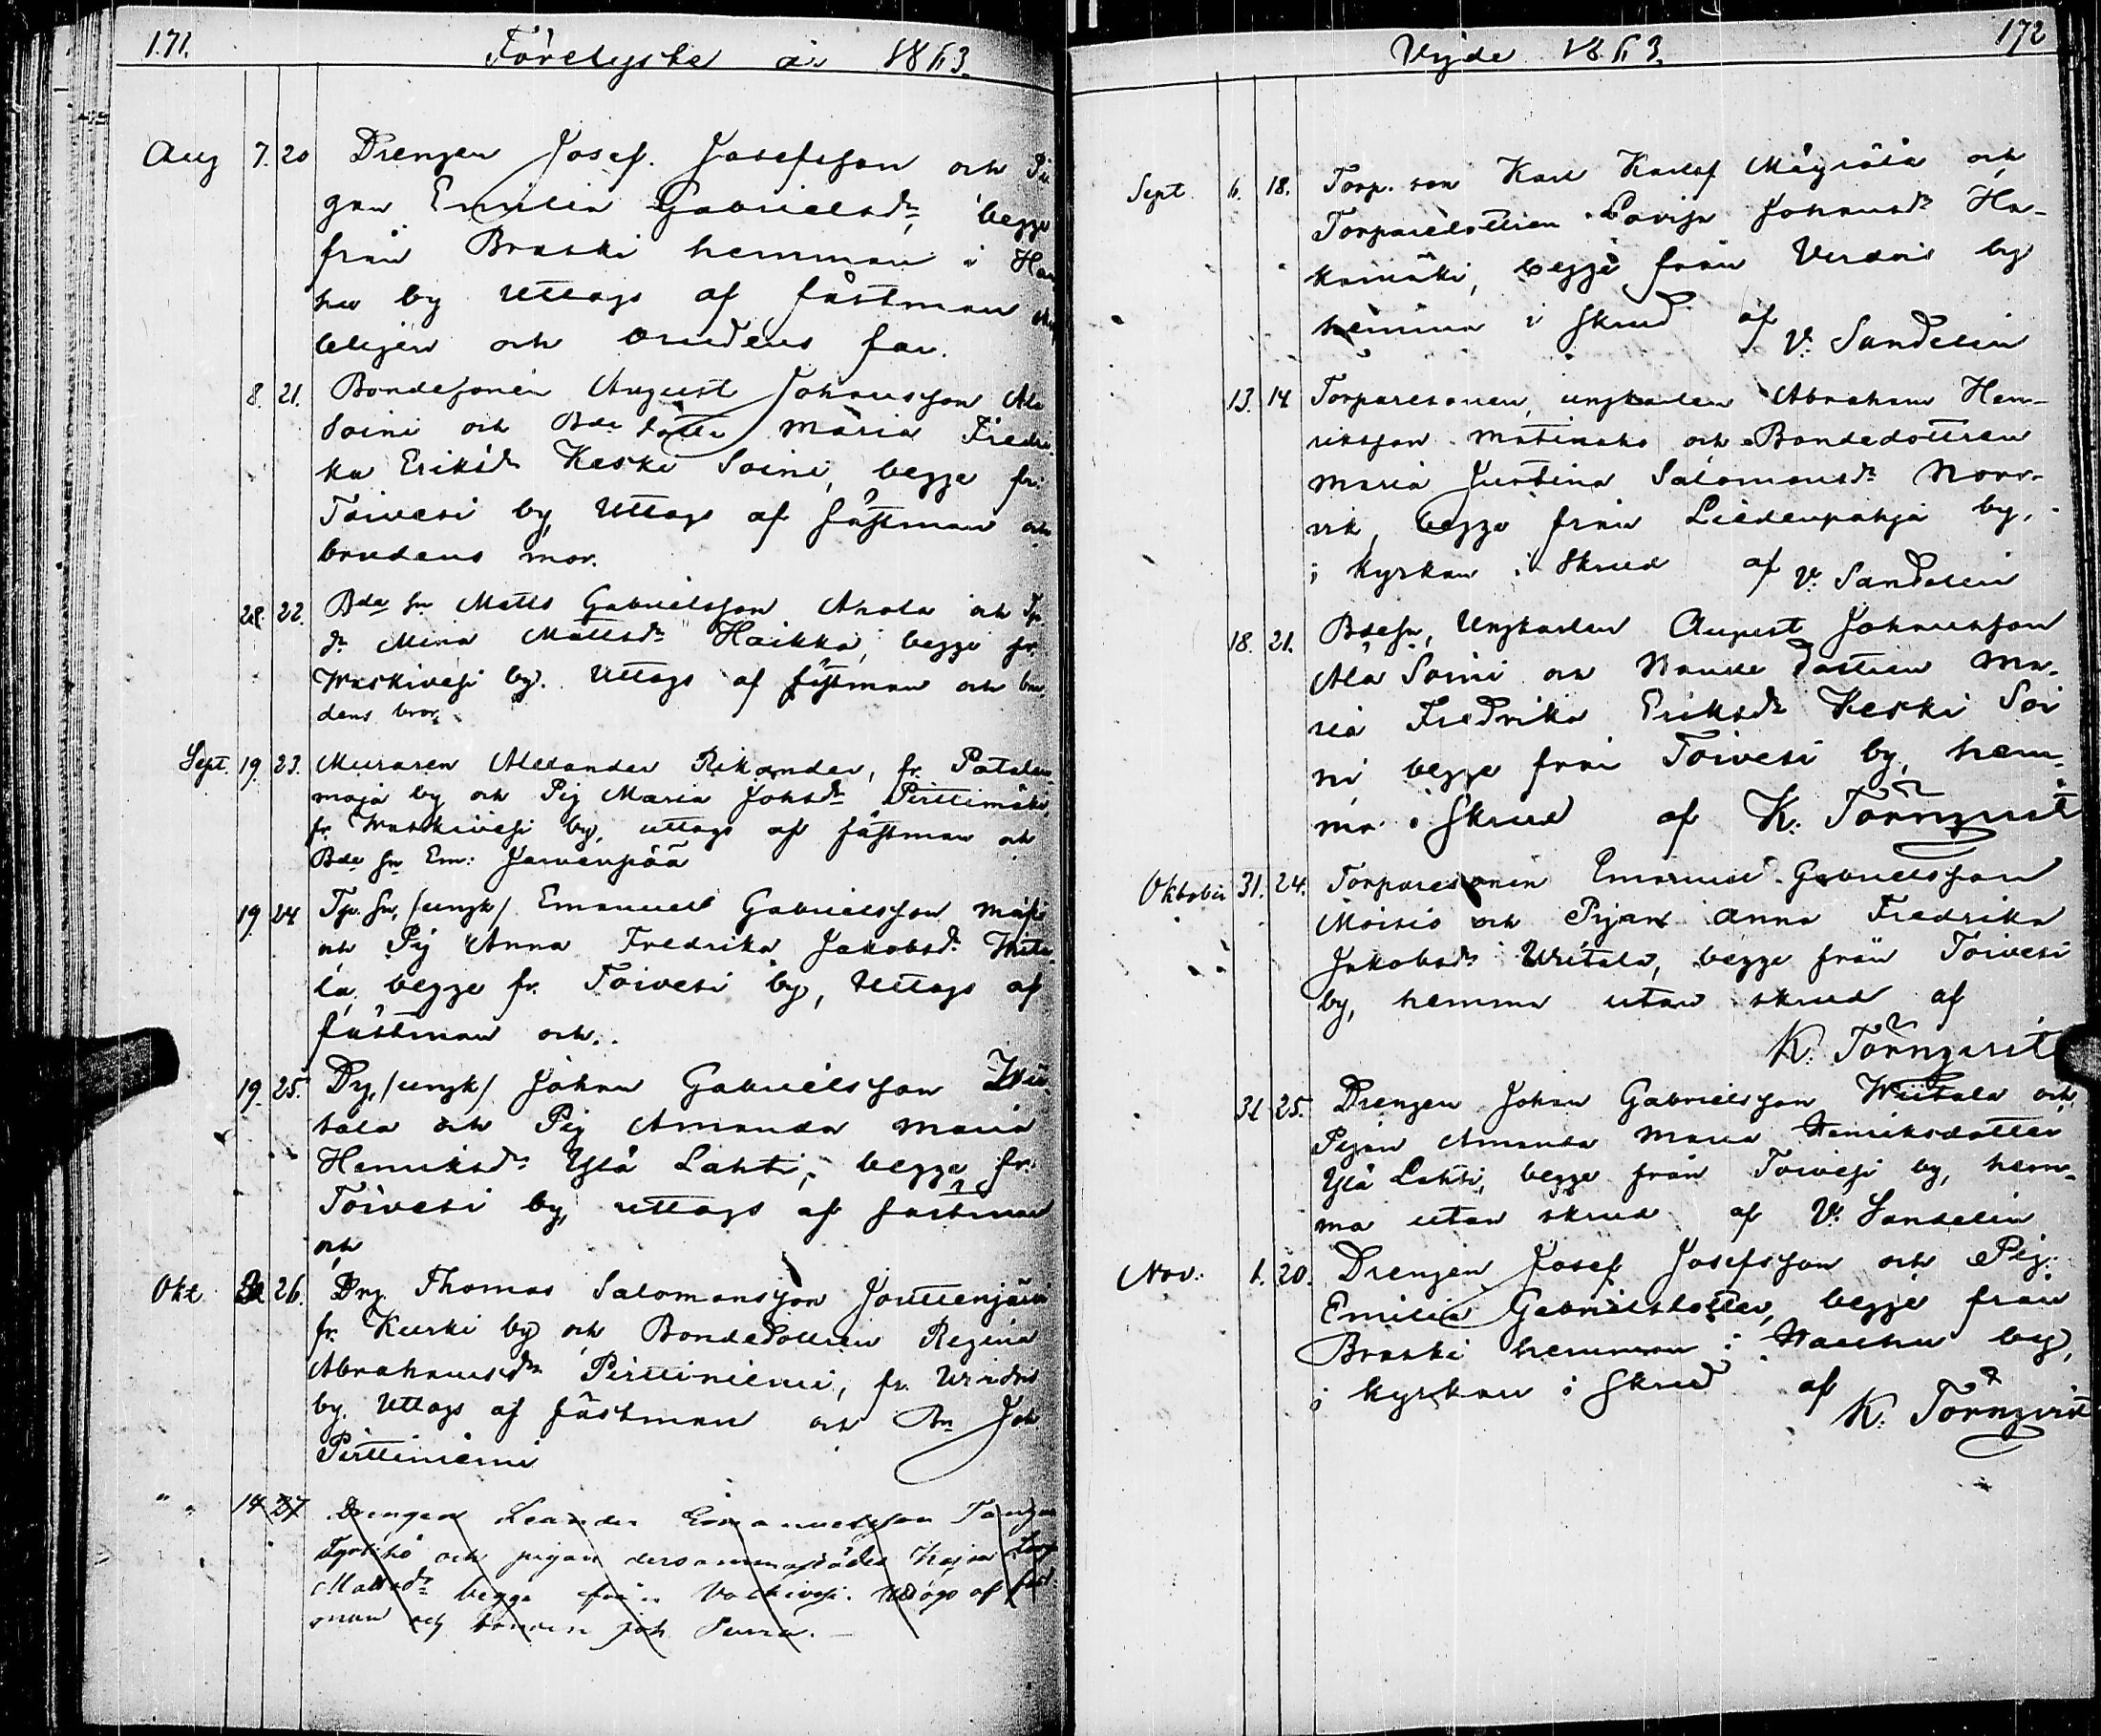 171.
Förelyste år 1863.
Aug 7. 20 Drengen Josef Josefsson och Pi
gan Emilia Gabrielsdr, begge
från Braski hemman i
by Uttags af fästman
och brudens far.
8. 21. Bondesonen August Johansson Ala
Soini och Bde dotter Maria Fredri
ka Eriksdr Keski Soini, begge fr.
Toivesi by, Uttags af fästman och
brudens mor.
28. 22. Bde sn Matts Gabrielsson Anola och
dr Mina Mattsdr Haikka, begge fr.
Waskivesi by. Uttags af fästman och bru
dens bror.
Sept. 19. 23. Muraren Alexander Rikander, fr.
maja by och Pig Maria Johsdr Pirttimäki,
fr. Waskivesi by, uttags af fästman och
Bde sn Em: Jarvenpää
19 24 Tp. sn, /ungk/ Emanuel Gabrielsson
och Pig Anna Fredrika Jakobsdr
la, begge fr. Toivesi by, Uttags af
fästman och..
19. 25. Dr, /ungk/ Johan Gabrielsson Wii
tala och Pig Amanda Maria
Henriksdr Ylä Lahti, begge fr.
Toivesi by, uttags af fästman
och
Okt 26. Drg. Thomas Salomonsson Jouttenjärvi
fr. Kurki by och Bondedottren Regina
Abrahamsdr Pirttiniemi, fr.
by. Uttags af fästman och Bn Joh
Pirttiniemi
" " 14 27 Drengen Leander Emanuelsson
och pigan dersammastädes Kajsa
Mattsdr begge från Vaskivesi. Uttogs af fäst
man och bonden Joh
172
Vigde 1863.
Sept. 6. 18. Torp. son Karl Karlsf och
Torparedottren Lovisa Johansdr Ha-
kamäki, begge från Verdois by
hemma i skrud af
V. Sandelin
13. 14 Torparesonen, ungkarlen Abraham Hen-
riksson Matinaho och Bondedottren
Maria Justina Salomonsdr Norr-
vik, begge från Liedenpohja by,
i kyrkan i Skrud af V. Sandelin
18. 21. Bdesn, Ungkarlen August Johansson
Ala Soini och Bonde dottren Ma-
ria Fredrika Eriksdr Keski Soi
ni begge från Toivesi by, hem-
ma i Skrud af K. Törnqvist
Oktober 31. 24. Torparesonen Emanuel Gabrielsson
Moisio och Pigan Anna Fredrika
Jakobsdr begge från Toivesi
by, hemma utan skrud af
K. Törnqvist
31 25. Drengen Johan Gabrielsson Wiitala och
Pigan Amanda Maria Henriksdotter
Ylä Lahti, begge från Toivesi by, hem-
ma utan skrud af V. Sandelin
Nov. 1. 20. Drengen Josef Josefsson och Pig.
Emilia Gabrielsdotter, begge från
Braski hemman i by,
i kyrkan i Skrud af
K. Törnqvist